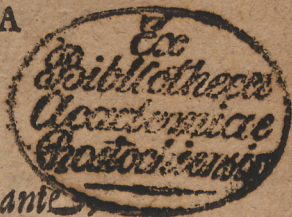 A
Ex
Bibliotheca
Academiae
Rostochiensis
ante